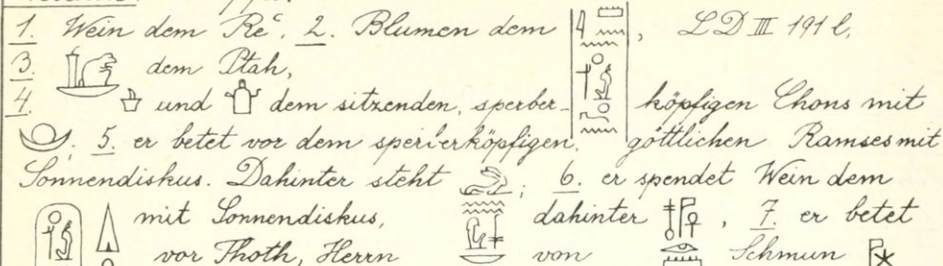 1. Wein dem Rēʿ. 2. Blumen dem 𓇋𓏠𓈖𓈖, LD III 191 l,
3. dem Ptah,
4. und dem sitzenden, sperber- köpfigen Chons mit
5. er betet vor dem sperberköpfigen göttlichen Ramses mit
Sonnendiskus. Dahinter steht ; 6. er spendet Wein dem
mit Sonnendiskus, dahinter , 7. er betet
vor Thoth, Herrn von Schmun